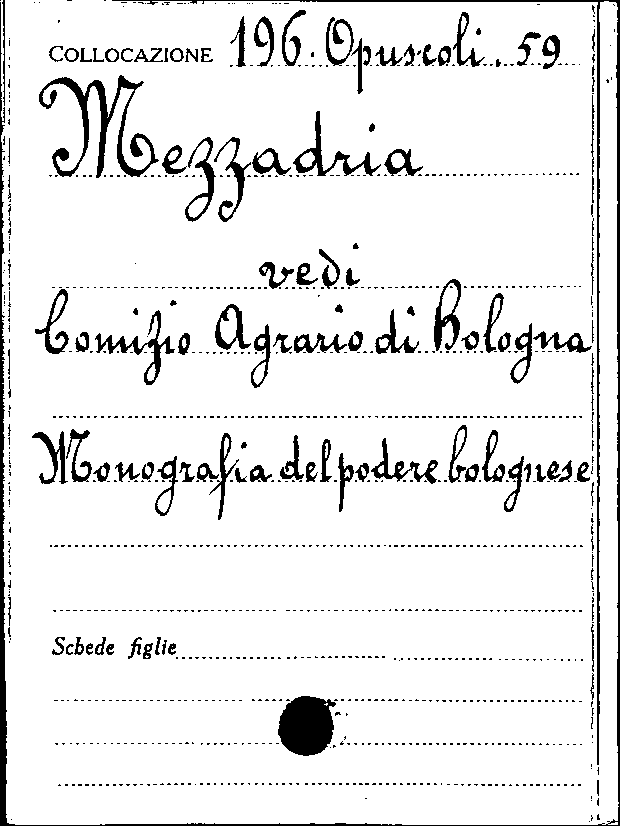 COLLOCAZIONE 196. Opuscoli. 59
Mezzadria
vedi
Comizio Agrario di Bologna
Monografia del podere bolognese
Schede figlie